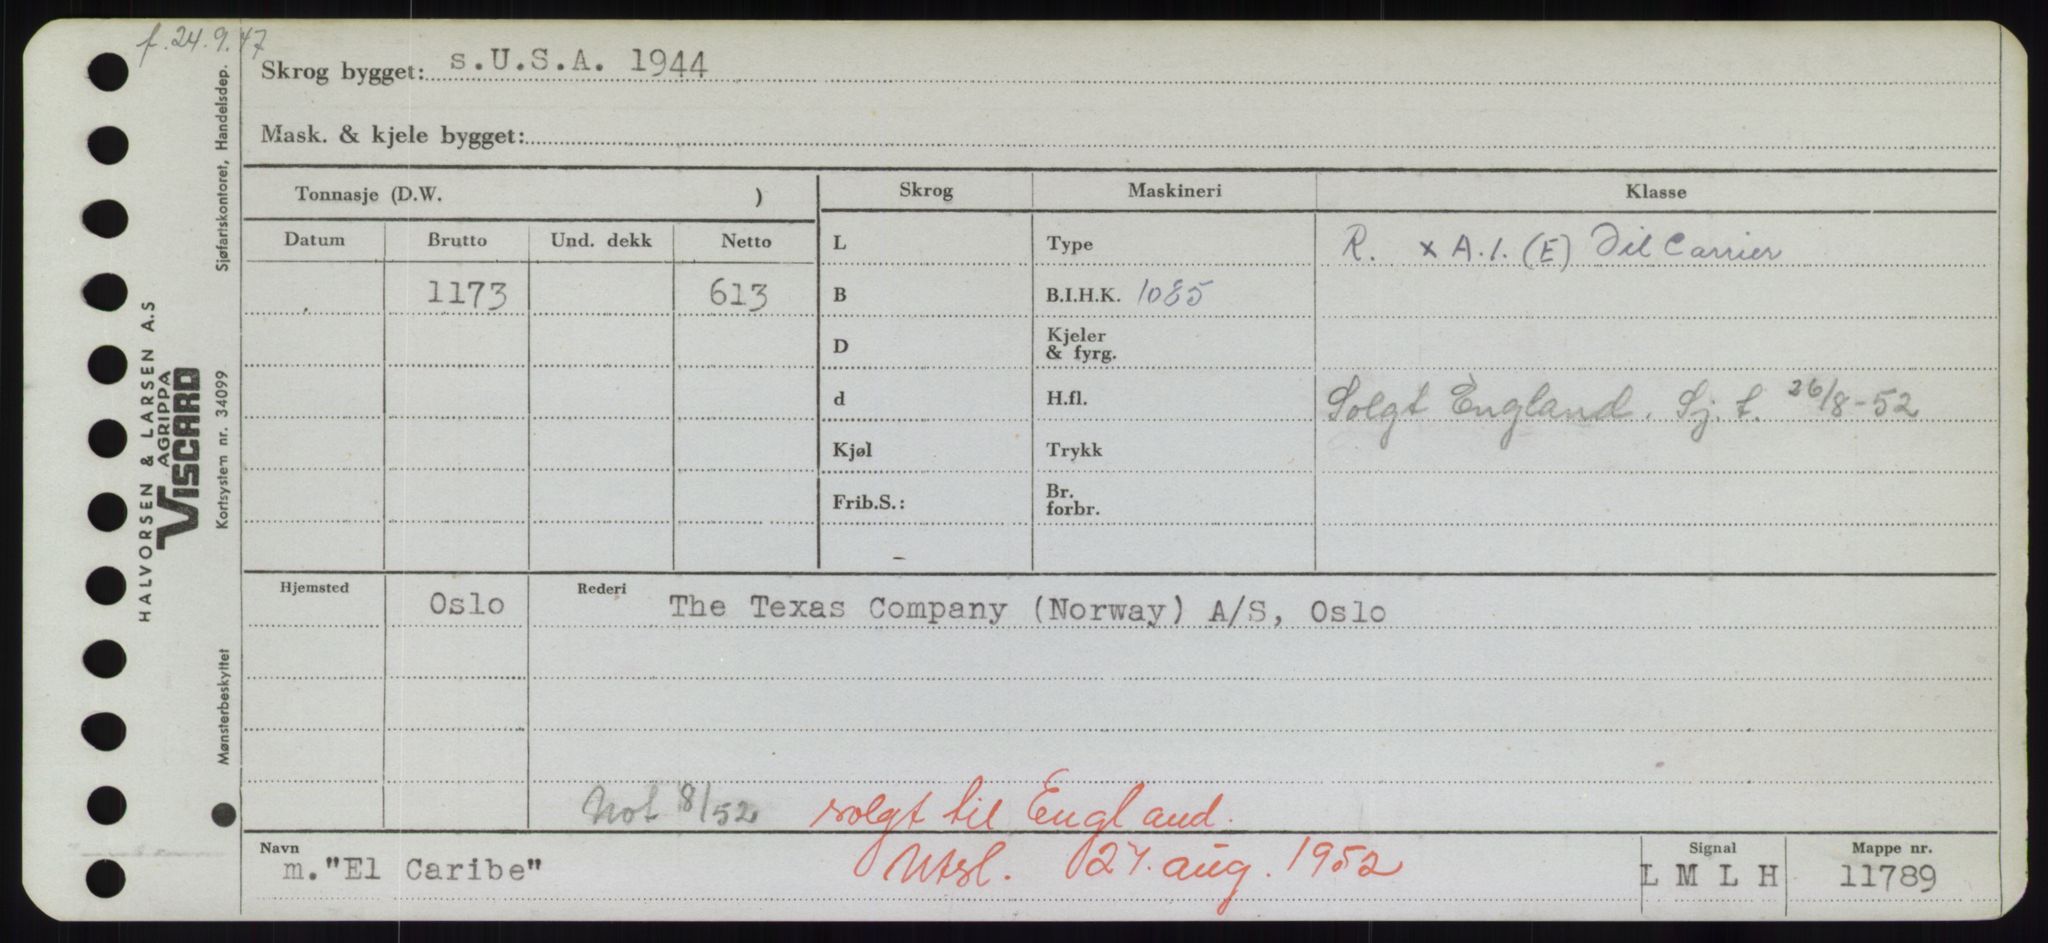 f. 24.9.47
Skrog bygget: s.U.S.A. 1944
Mask. & kjele bygget:
Tonnasje (D.W. )
Skrog Maskineri Klasse
Datum Brutto Und. dekk Netto
L Type R. x A.1. (E) Oil Carrier
1173 613 B B.I.H.K. 1085
D Kjeler & fyrg.
d H.fl. Solgt England. Sj. t. 26/8-52
Kjøl Trykk
Frib.S.: Br. forbr.
Hjemsted Oslo Rederi The Texas Company (Norway) A/S, Oslo
Not 8/52 solgt til England.
Navn m."El Caribe" Utsl. 27. aug. 1952 Signal L M L H Mappe nr. 11789
HALVORSEN & LARSEN A.S
AGRIPPA
VISCARD
Mønsterbeskyttet Kortsystem nr. 34099 Sjøfartskontoret, Handelsdep.